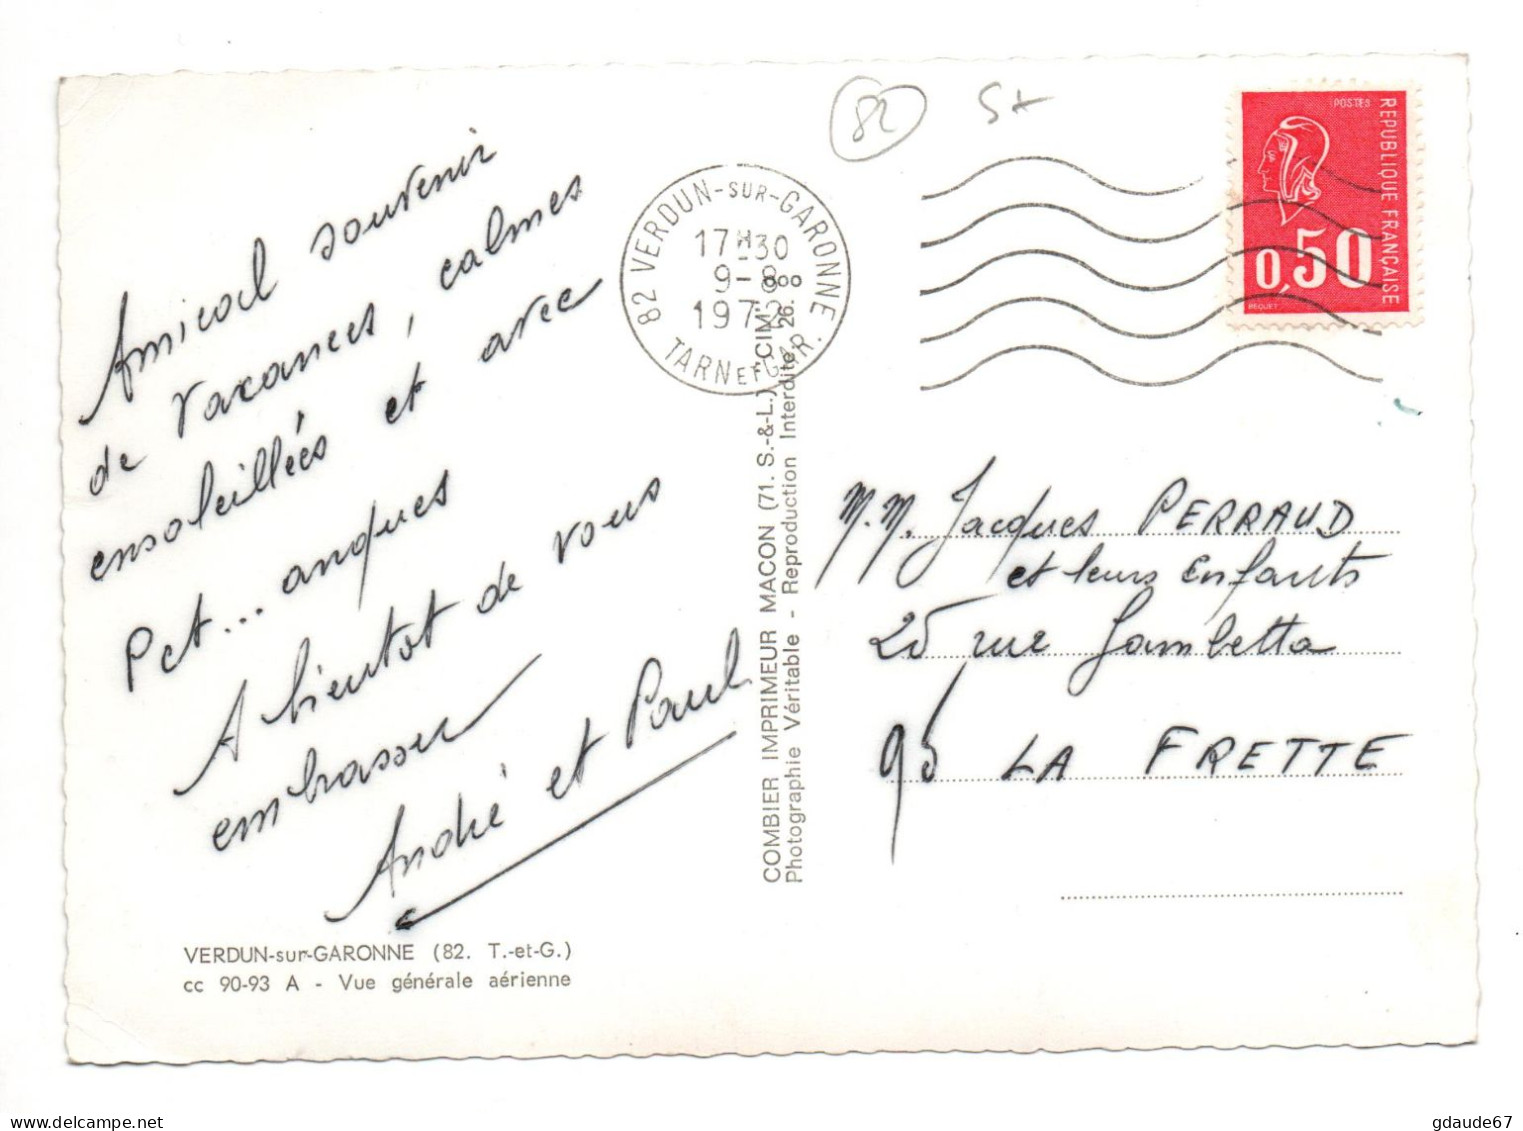 82
St
82 VERDUN-SUR-GARONNE
17H30
9-8
1972
TARN ET GAR.
POSTES
REPUBLIQUE FRANÇAISE
0,50
BEQUET
Amical souvenir
de vacances, calmes
ensoleillées et avec
Pet... anques
A bientot de vous
embrasser
André et Paul
COMBIER IMPRIMEUR MACON (71. S.-&-L.) "CIM"
Photographie Véritable - Reproduction Interdite 26.
M.M. Jacques PERRAUD
et leurs Enfants
25 rue Gambetta
95 LA FRETTE
VERDUN-sur-GARONNE (82. T.-et-G.)
cc 90-93 A - Vue générale aérienne
gdaude67